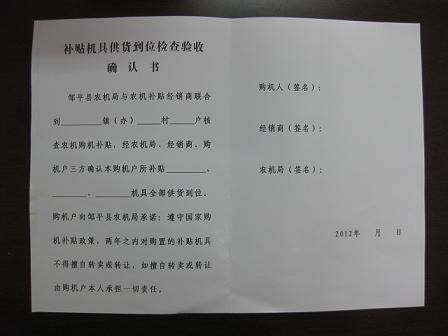 补贴机具供货到位检查验收
确 认 书
邹平县农机局与农机补贴经销商联合
到________镇（办）______村______户核
查农机购机补贴，经农机局、经销商、购
机户三方确认本购机户所补贴________、
________、________机具全部供货到位。
购机户向邹平县农机局承诺：遵守国家购
机补贴政策，两年之内对购置的补贴机具
不得擅自转卖或转让，如擅自转卖或转让
由购机户本人承担一切责任。
购机人（签名）：
经销商（签名）：
农机局（签名）：
2012年 月 日